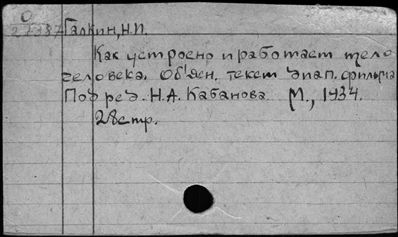 О
27387 Галкин, Н.И.
Как устроено и работает тело
человека. Об'ясн. текст диап. фильма
Под ред. Н.А. Кабанова. М., 1934.
28стр.